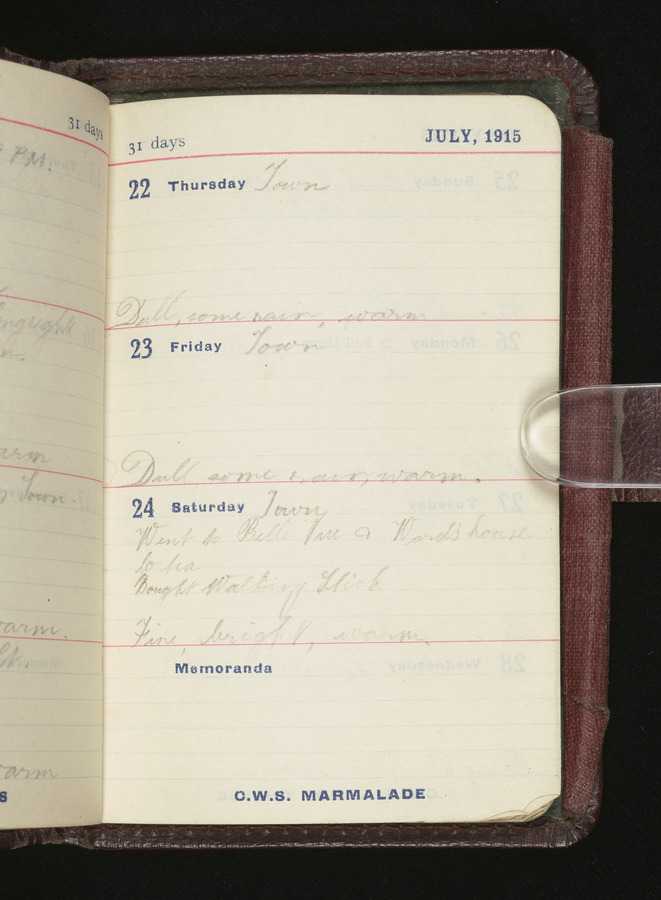 31 days
P.M.
arm
Town.
arm.
arm
S
31 days JULY, 1915
22 Thursday Town
Dull, some rain, warm
23 Friday Town
Dull, some rain, warm.
24 Saturday Town
Went to Belle Vue & Ward's house
to tea
Bought Walking Stick
Fine, bright, warm.
Memoranda
C.W.S. MARMALADE